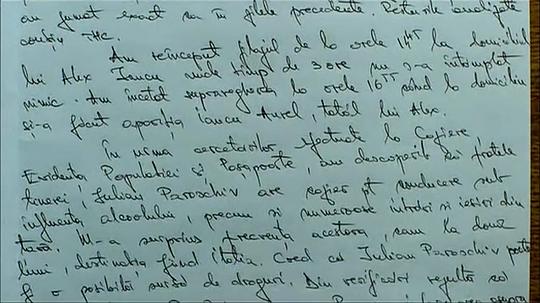 au fumat exact ca în zilele precedente. Peturile analizate
conțin THC.
Am reînceput filajul de la orele 14:00 la domiciliul
lui Alex Iancu unde timp de 3 ore nu s-a întâmplat
nimic. Am încetat supravegherea la orele 16:55 când la domiciliu
și-a făcut apariția Iancu Aurel, tatăl lui Alex.
În urma cercetărilor efectuate la Cazier,
Evidența Populației și Pașapoarte, am descoperit că fratele
tinerei, Iulian Paroschiv are cazier pt conducere sub
influența alcoolului, precum și numeroase intrări și ieșiri din
țară. M-a surprins frecvența acestora, cam la două
luni, destinația fiind Italia. Cred că Iulian Paroschiv poate
fi o posibilă sursă de droguri. Din verificări rezultă că